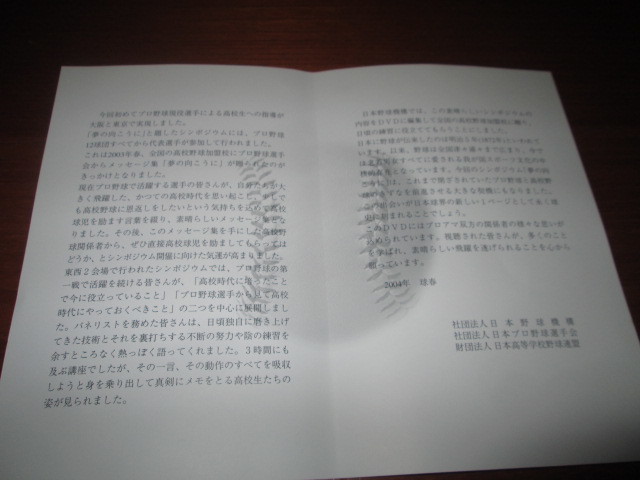 今回初めてプロ野球現役選手による高校生への指導が
大阪と東京で実現しました。
「夢の向こうに」と題したシンポジウムには、プロ野球
12球団すべてから代表選手が参加して行われました。
これは2003年春、全国の高校野球加盟校にプロ野球選手
会からメッセージ集「夢の向こうに」が贈られたのが
きっかけとなりました。
現在プロ野球で活躍する選手の皆さんが、自分たちが大
きく飛躍した、かつての高校時代を思い起こし、少しで
も高校野球に恩返しをしたいという気持ちを込めて高校
球児を励ます言葉を綴り、素晴らしいメッセージ集とな
りました。その後、このメッセージ集を手にした高校野
球関係者から、ぜひ直接高校球児を励ましてもらっては
どうか、とシンポジウム開催に向けた気運が高まりました。
東西２会場で行われたシンポジウムでは、プロ野球の第
一戦で活躍を続ける皆さんが、「高校時代に培ったこと
で今に役立っていること」「プロ野球選手から見て高校
時代にやっておくべきこと」の二つを中心に展開しまし
た。パネリストを務めた皆さんは、日頃独自に磨き上げ
てきた技術とそれを裏打ちする不断の努力や陰の練習を
余すところなく熱っぽく語ってくれました。３時間にも
及ぶ講座でしたが、その一言、その動作のすべてを吸収
しようと身を乗り出して真剣にメモをとる高校生たちの
姿が見られました。
日本野球機構では、この素晴らしいシンポジウムの
内容をＤＶＤに編集して全国の高校野球加盟校に贈り、
日頃の練習に役立ててもらうことにしました。
日本に野球が伝来したのは明治５年(1872年)といわれて
います。以来、野球は全国津々浦々で広まり、今で
は
すべてに愛される我が国スポーツ文化の中
となっています。今回のシンポジウム「夢の
向こうに」は、これまで閉ざされていたプロ野球と高校野
球のきずなを前進させる大きな契機にもなりました。
この出会いが日本球界の新しい１ページとして永く球
史に刻まれることでしょう。
このＤＶＤにはプロアマ双方の関係者の様々な思いが
込められています。視聴された皆さんが、多くのこと
を学ばれ、素晴らしい飛躍を遂げられることを心から
願っています。
2004年　球春
社団法人日本野球機構
社団法人日本プロ野球選手会
財団法人日本高等学校野球連盟